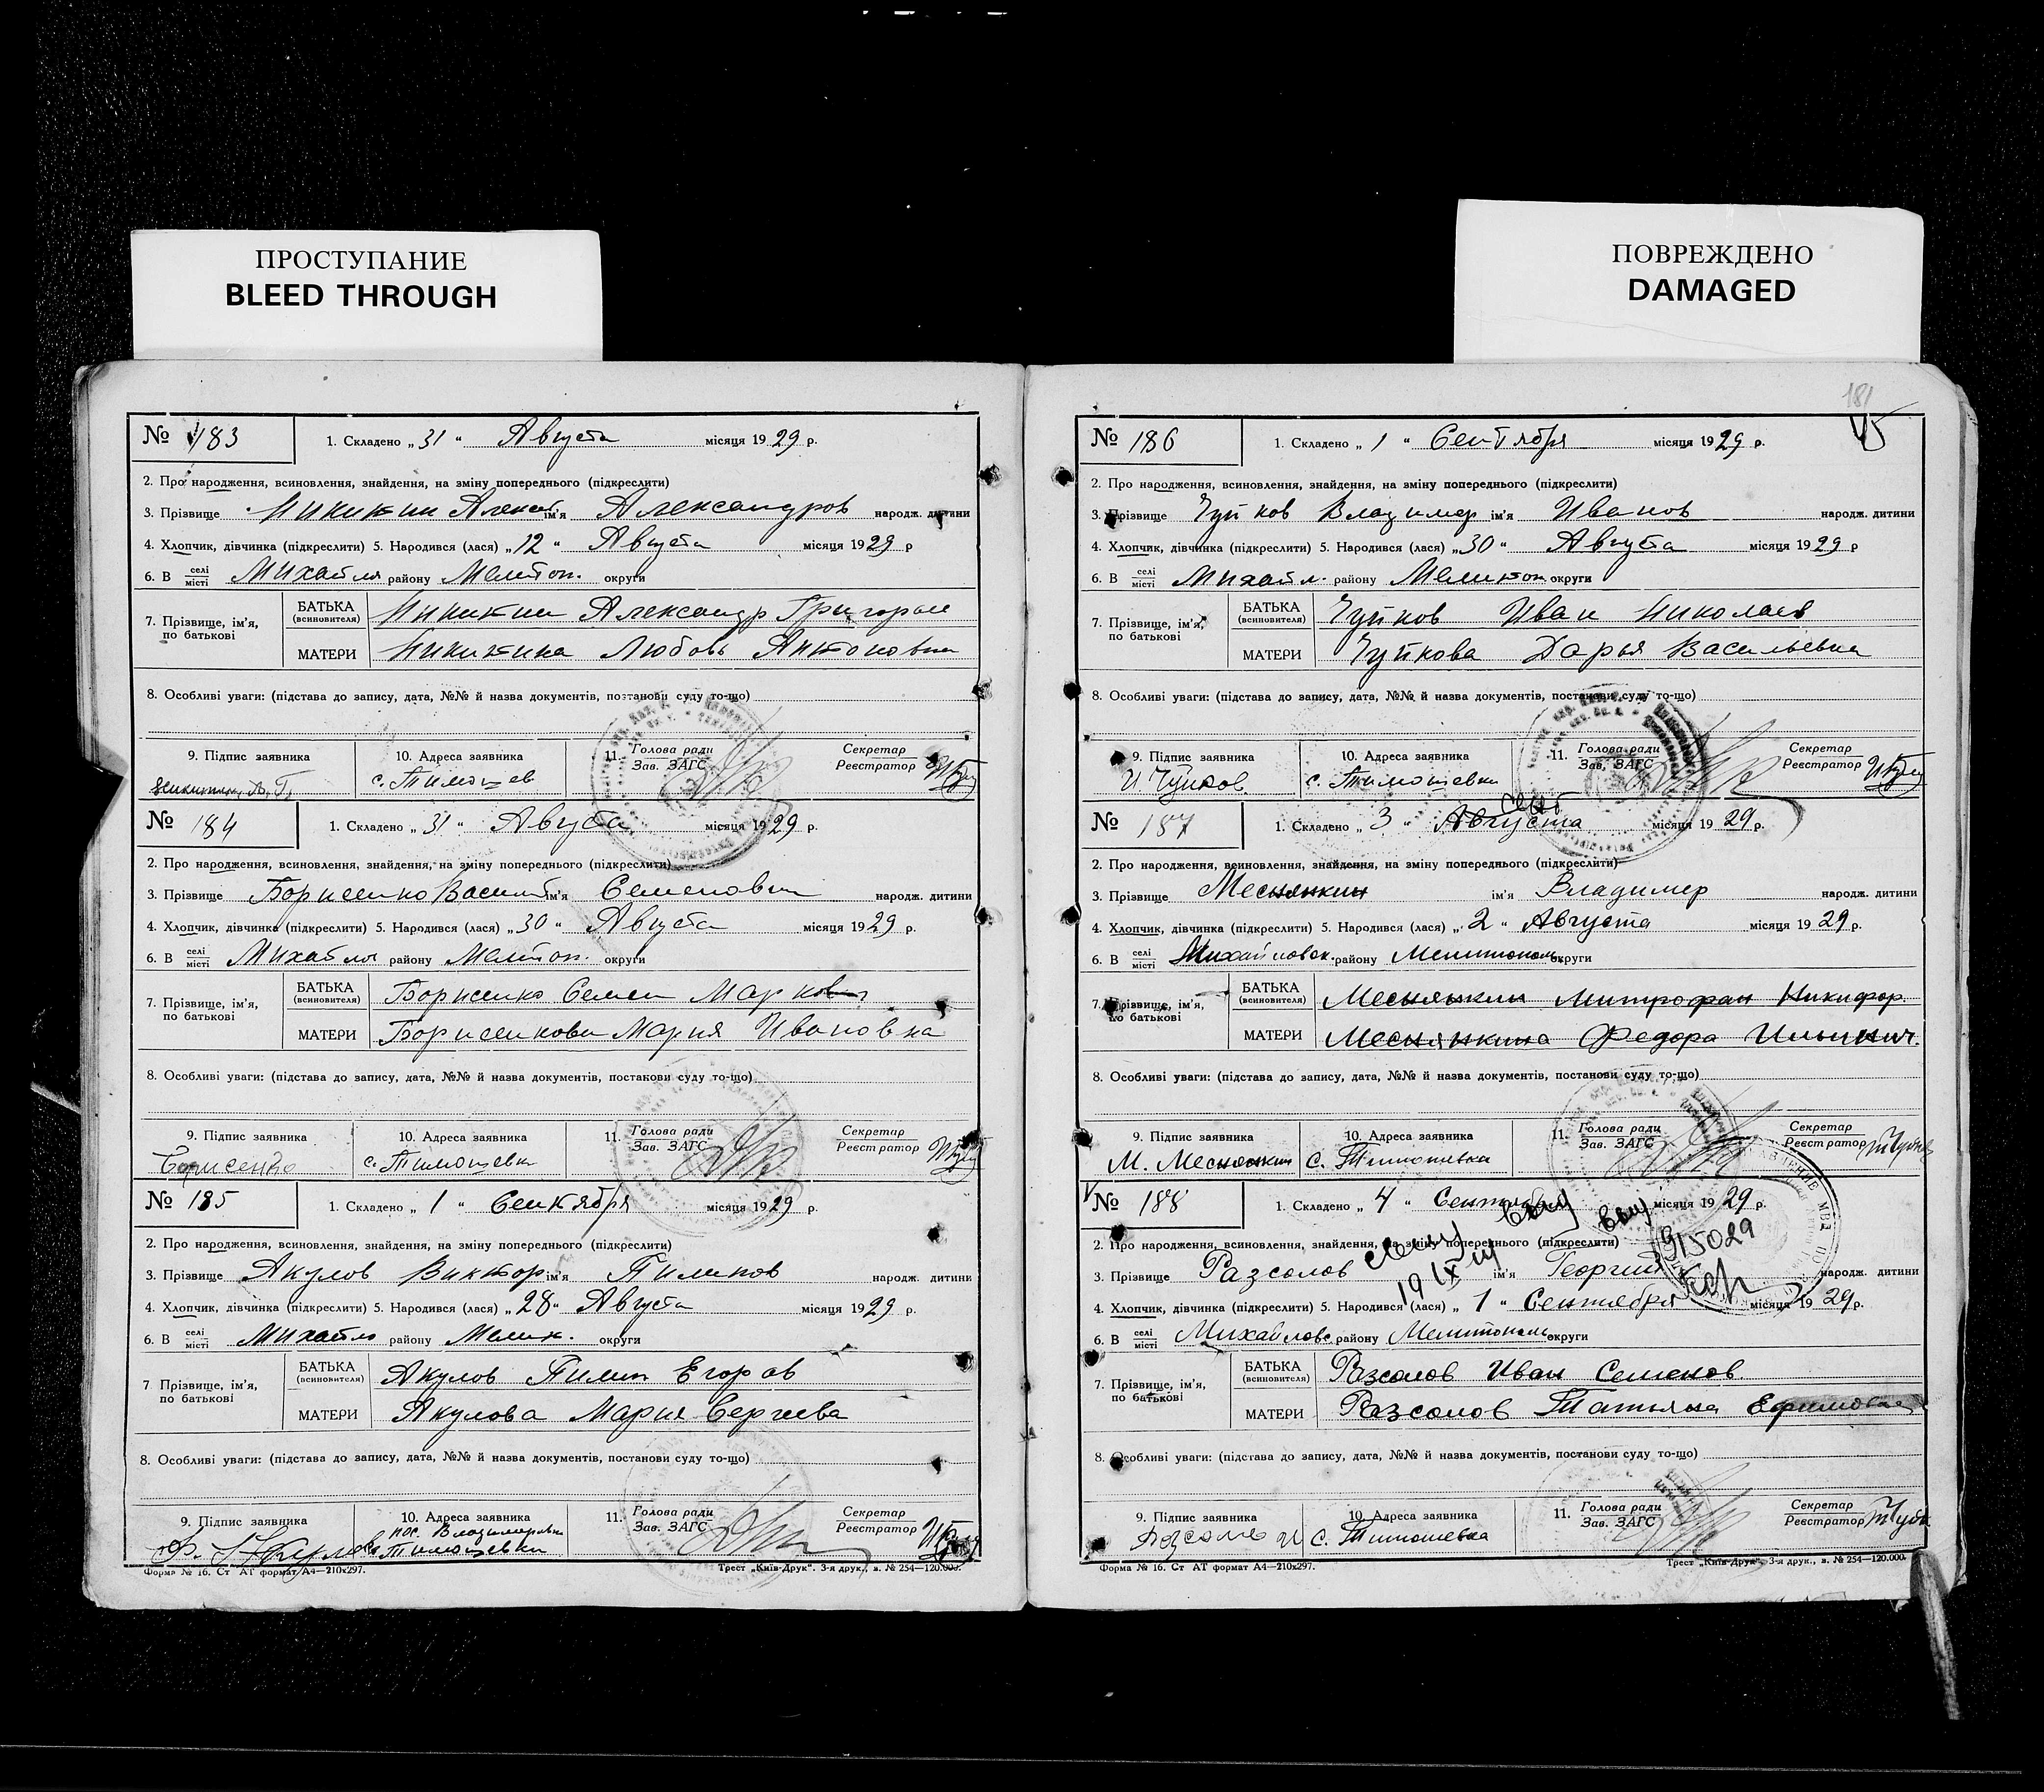 ПРОСТУПАНИЕ
BLEED THROUGH
ПОВРЕЖДЕНО
DAMAGED
№ 183
1. Складено „ 31 “ Августа місяця 1929 р.
2. Про народження, всиновлення, знайдення, на зміну попереднього (підкреслити)
3. Прізвище Никитин Алексей ім'я Александров народж. дитини
4. Хлопчик, дівчинка (підкреслити) 5. Народився (лася) „ 12 “ Августа місяця 1929 р
6. В селі місті Михайло району Мелітоп. округи
7. Прізвище, ім'я, по батькові
БАТЬКА (всиновителя) Никитин Александр Григорьев
МАТЕРИ Никитина Любовь Антоновна
8. Особливі уваги: (підстава до запису, дата, №№ й назва документів, постанови суду то-що)
9. Підпис заявника
10. Адреса заявника с. Тимошев
11. Голова ради Зав. ЗАГС
Секретар Реєстратор
№ 184
1. Складено „ 31 “ Августа місяця 1929 р.
2. Про народження, всиновлення, знайдення, на зміну попереднього (підкреслити)
3. Прізвище Борисенко Васили ім'я Семенович народж. дитини
4. Хлопчик, дівчинка (підкреслити) 5. Народився (лася) „ 30 “ Августа місяця 1929 р.
6. В селі місті Михайло району Мелітоп. округи
7. Прізвище, ім'я, по батькові
БАТЬКА (всиновителя) Борисенко Семен Маркович
МАТЕРИ Борисенкова Мария Ивановна
8. Особливі уваги: (підстава до запису, дата, №№ й назва документів, постакови суду то-що)
9. Підпис заявника Борисенко
10. Адреса заявника с. Тимошевки
11. Голова ради Зав. ЗАГС
Секретар Реєстратор
№ 185
1. Складено „ 1 “ Сентября місяця 1929 р.
2. Про народження, всиновлення, знайдення, на зміну попереднього (підкреслити)
3. Прізвище Акулов Виктор ім'я Пилипов народж. дитини
4. Хлопчик, дівчинка (підкреслити) 5. Народився (лася) „ 28 “ Августа місяця 1929 р.
6. В селі місті Михайло району Мелит. округи
7 Прізвище, ім'я, по батькові
БАТЬКА (всиновителя) Акулов Пилип Егоров
МАТЕРИ Акулова Мария Сергеева
8. Особливі уваги: (підстава до запису, дата, №№ й назва документів, постанови суду то-що)
9. Підпис заявника
10. Адреса заявника пос. Владимировка Тимошевки
11. Голова ради Зав. ЗАГС
Секретар Реєстратор
Форма № 16. Ст АТ формат А4—210х297.
Трест „Київ-Друк“. 3-я друк., з. № 254—120.000.
181
№ 186
1. Складено „ 1 “ Сентября місяця 1929 р.
2. Про народження, всиновлення, знайдення, на зміну попереднього (підкреслити)
3. Прізвище Чуйков Владимер ім'я Иванов народж. дитини
4. Хлопчик, дівчинка (підкреслити) 5. Народився (лася) „ 30 “ Августа місяця 1929 р
6. В селі місті Михайл. району Мелитоп округи
7. Прізвище, ім'я, по батькові
БАТЬКА (всиновителя) Чуйков Иван Николаев
МАТЕРИ Чуйкова Дарья Васильевна
8. Особливі уваги: (підстава до запису, дата, №№ й назва документів, постанови суду то-що)
9. Підпис заявника И Чуйков.
10. Адреса заявника с. Тимошевки
11. Голова ради Зав. ЗАГС
Секретар Реєстратор
№ 187
1. Складено „ 3 “ Августа сент місяця 1929 р.
2. Про народження, всиновлення, знайдення, на зміну попереднього (підкреслити)
3. Прізвище Меснянкин ім'я Владимер народж. дитини
4. Хлопчик, дівчинка (підкреслити) 5. Народився (лася) „ 2 “ Августа місяця 1929 р.
6. В селі місті Михайловск. району Мелитополь округи
7. Прізвище, ім'я, по батькові
БАТЬКА (всиновителя) Меснянкин Митрофан Никифор.
МАТЕРИ Меснянкина Федора Ильинич.
8. Особливі уваги: (підстава до запису, дата, №№ й назва документів, постанови суду то-що)
9. Підпис заявника М. Меснянкин
10. Адреса заявника с. Тимошевка
11. Голова ради Зав. ЗАГС
Секретар Реєстратор
№ 188
1. Складено „ 4 “ Сентября місяця 1929 р.
2. Про народження, всиновлення, знайдення, на зміну попереднього (підкреслити)
915029
3. Прізвище Разсолов ім'я Георгий народж. дитини
4. Хлопчик, дівчинка (підкреслити) 5. Народився (лася) „ 1 “ Сентября місяця 1929 р.
6. В селі місті Михайловс району Мелитополь округи
7. Прізвище, ім'я, по батькові
БАТЬКА (всиновителя) Разсолов Иван Семенов.
МАТЕРИ Разсолов Татьяна Ефимовна
8. Особливі уваги: (підстава до запису, дата, №№ й назва документів, постанови суду то-що)
9. Підпис заявника
10. Адреса заявника с. Тимошевка
11. Голова ради Зав. ЗАГС
Секретар Реєстратор
Форма № 16. Ст АТ формат А4—210х297.
Трест „Київ-Друк“. 3-я друк., з. № 254—120.000.